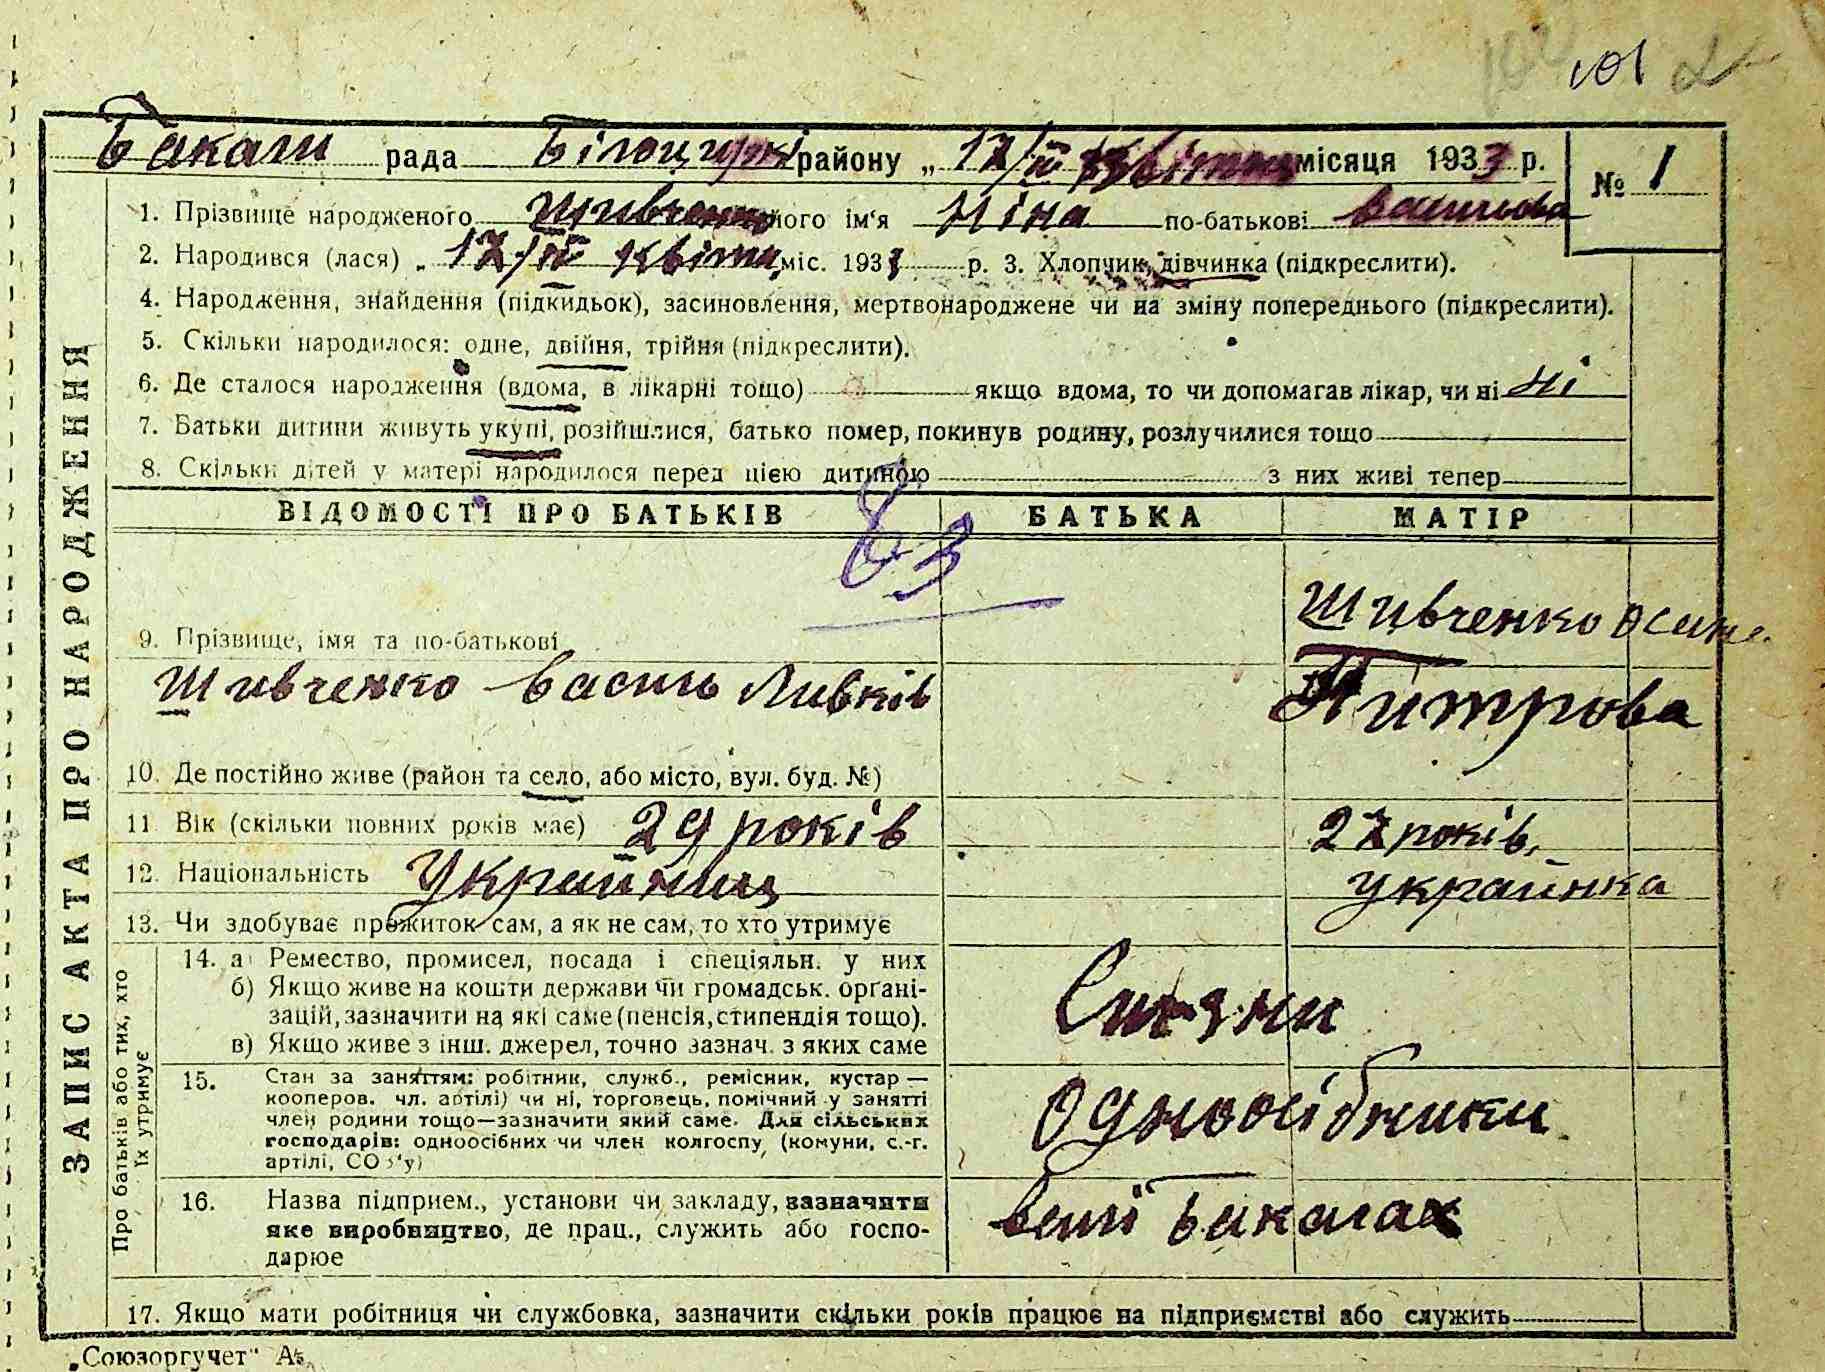 101 2
Бакали рада Білоциркі району „ 17/IV Квітня місяця 1933 р. № 1
1. Прізвище народженого Шивченко його ім‘я Ніна по-батькові Васильова
2. Народився (лася) „ 17/IV Квітня міс. 1933 р. 3. Хлопчик, дівчинка (підкреслити).
4. Народження, знайдення (підкидьок), засиновлення, мертвонароджене чи на зміну попереднього (підкреслити).
5. Скільки народилося: одне, двійня, трійня (підкреслити).
6. Де сталося народження (вдома, в лікарні тощо) якщо вдома, то чи допомагав лікар, чи ні ні
7. Батьки дитини живуть укупі, розійшлися, батько помер, покинув родину, розлучилися тощо
8. Скільки дітей у матері народилося перед цією дитиною з них живі тепер
ВІДОМОСТІ ПРО БАТЬКІВ БАТЬКА МАТІР
Шивченко
9. Прізвище, імя та по-батькові
Шивченко Василь Ливків Питрова
10. Де постійно живе (район та село, або місто, вул. буд. №)
11. Вік (скільки повних років має) 29 років 27 років,
12. Національність Українец українка
13. Чи здобуває прожиток сам, а як не сам, то хто утримує
14. а) Ремество, промисел, посада і спеціяльн. у них
б) Якщо живе на кошти держави чи громадськ. орґані-
зацій, зазначити на які саме (пенсія, стипендія тощо).
в) Якщо живе з інш. джерел, точно зазнач. з яких саме
15. Стан за заняттям: робітник, служб., ремісник, кустар —
кооперов. чл. артілі) чи ні, торговець, помічний у занятті
член родини тощо—зазначити який саме. Для сільських
господарів: одноосібних чи член колгоспу, (комуни, с.-г.
артілі, СОЗ‘у)
Одноосібники
16. Назва підприєм., установи чи закладу, зазначити
яке виробництво, де прац., служить або госпо-
дарюе
Бакалах
17. Якщо мати робітниця чи службовка, зазначити скільки років працює на підприємстві або служить
ЗАПИС АКТА ПРО НАРОДЖЕННЯ
Про батьків або тих, хто
їх утримує
„Союзоргучет“